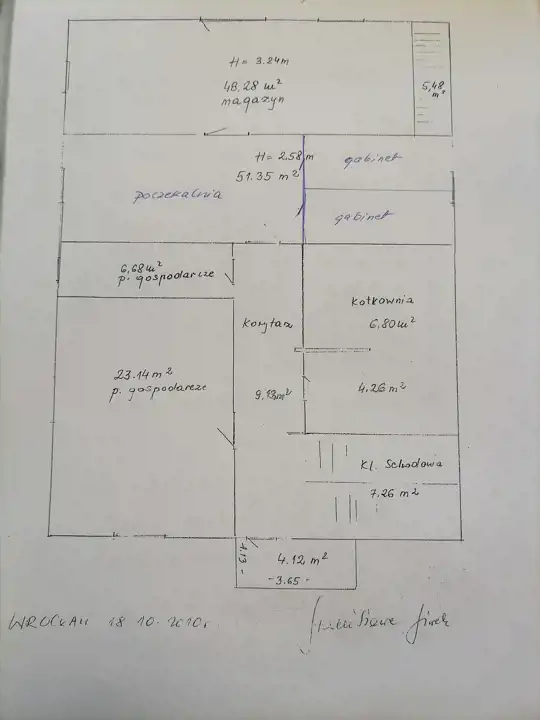 H= 3.24m
48.28 m²
magazyn
5,48
m²
H= 2.58 m
51.35 m²
gabinet
poczekalnia
gabinet
6,68 m²
p. gospodarcze
Kotłownia
6,80 m²
Korytarz
23.14 m²
p. gospodarcze
9.13 m²
4,26 m²
Kl. Schodowa
7,26 m²
1.13 -
4.12 m²
-3.65-
WROCŁAW 18 10. 2010r.